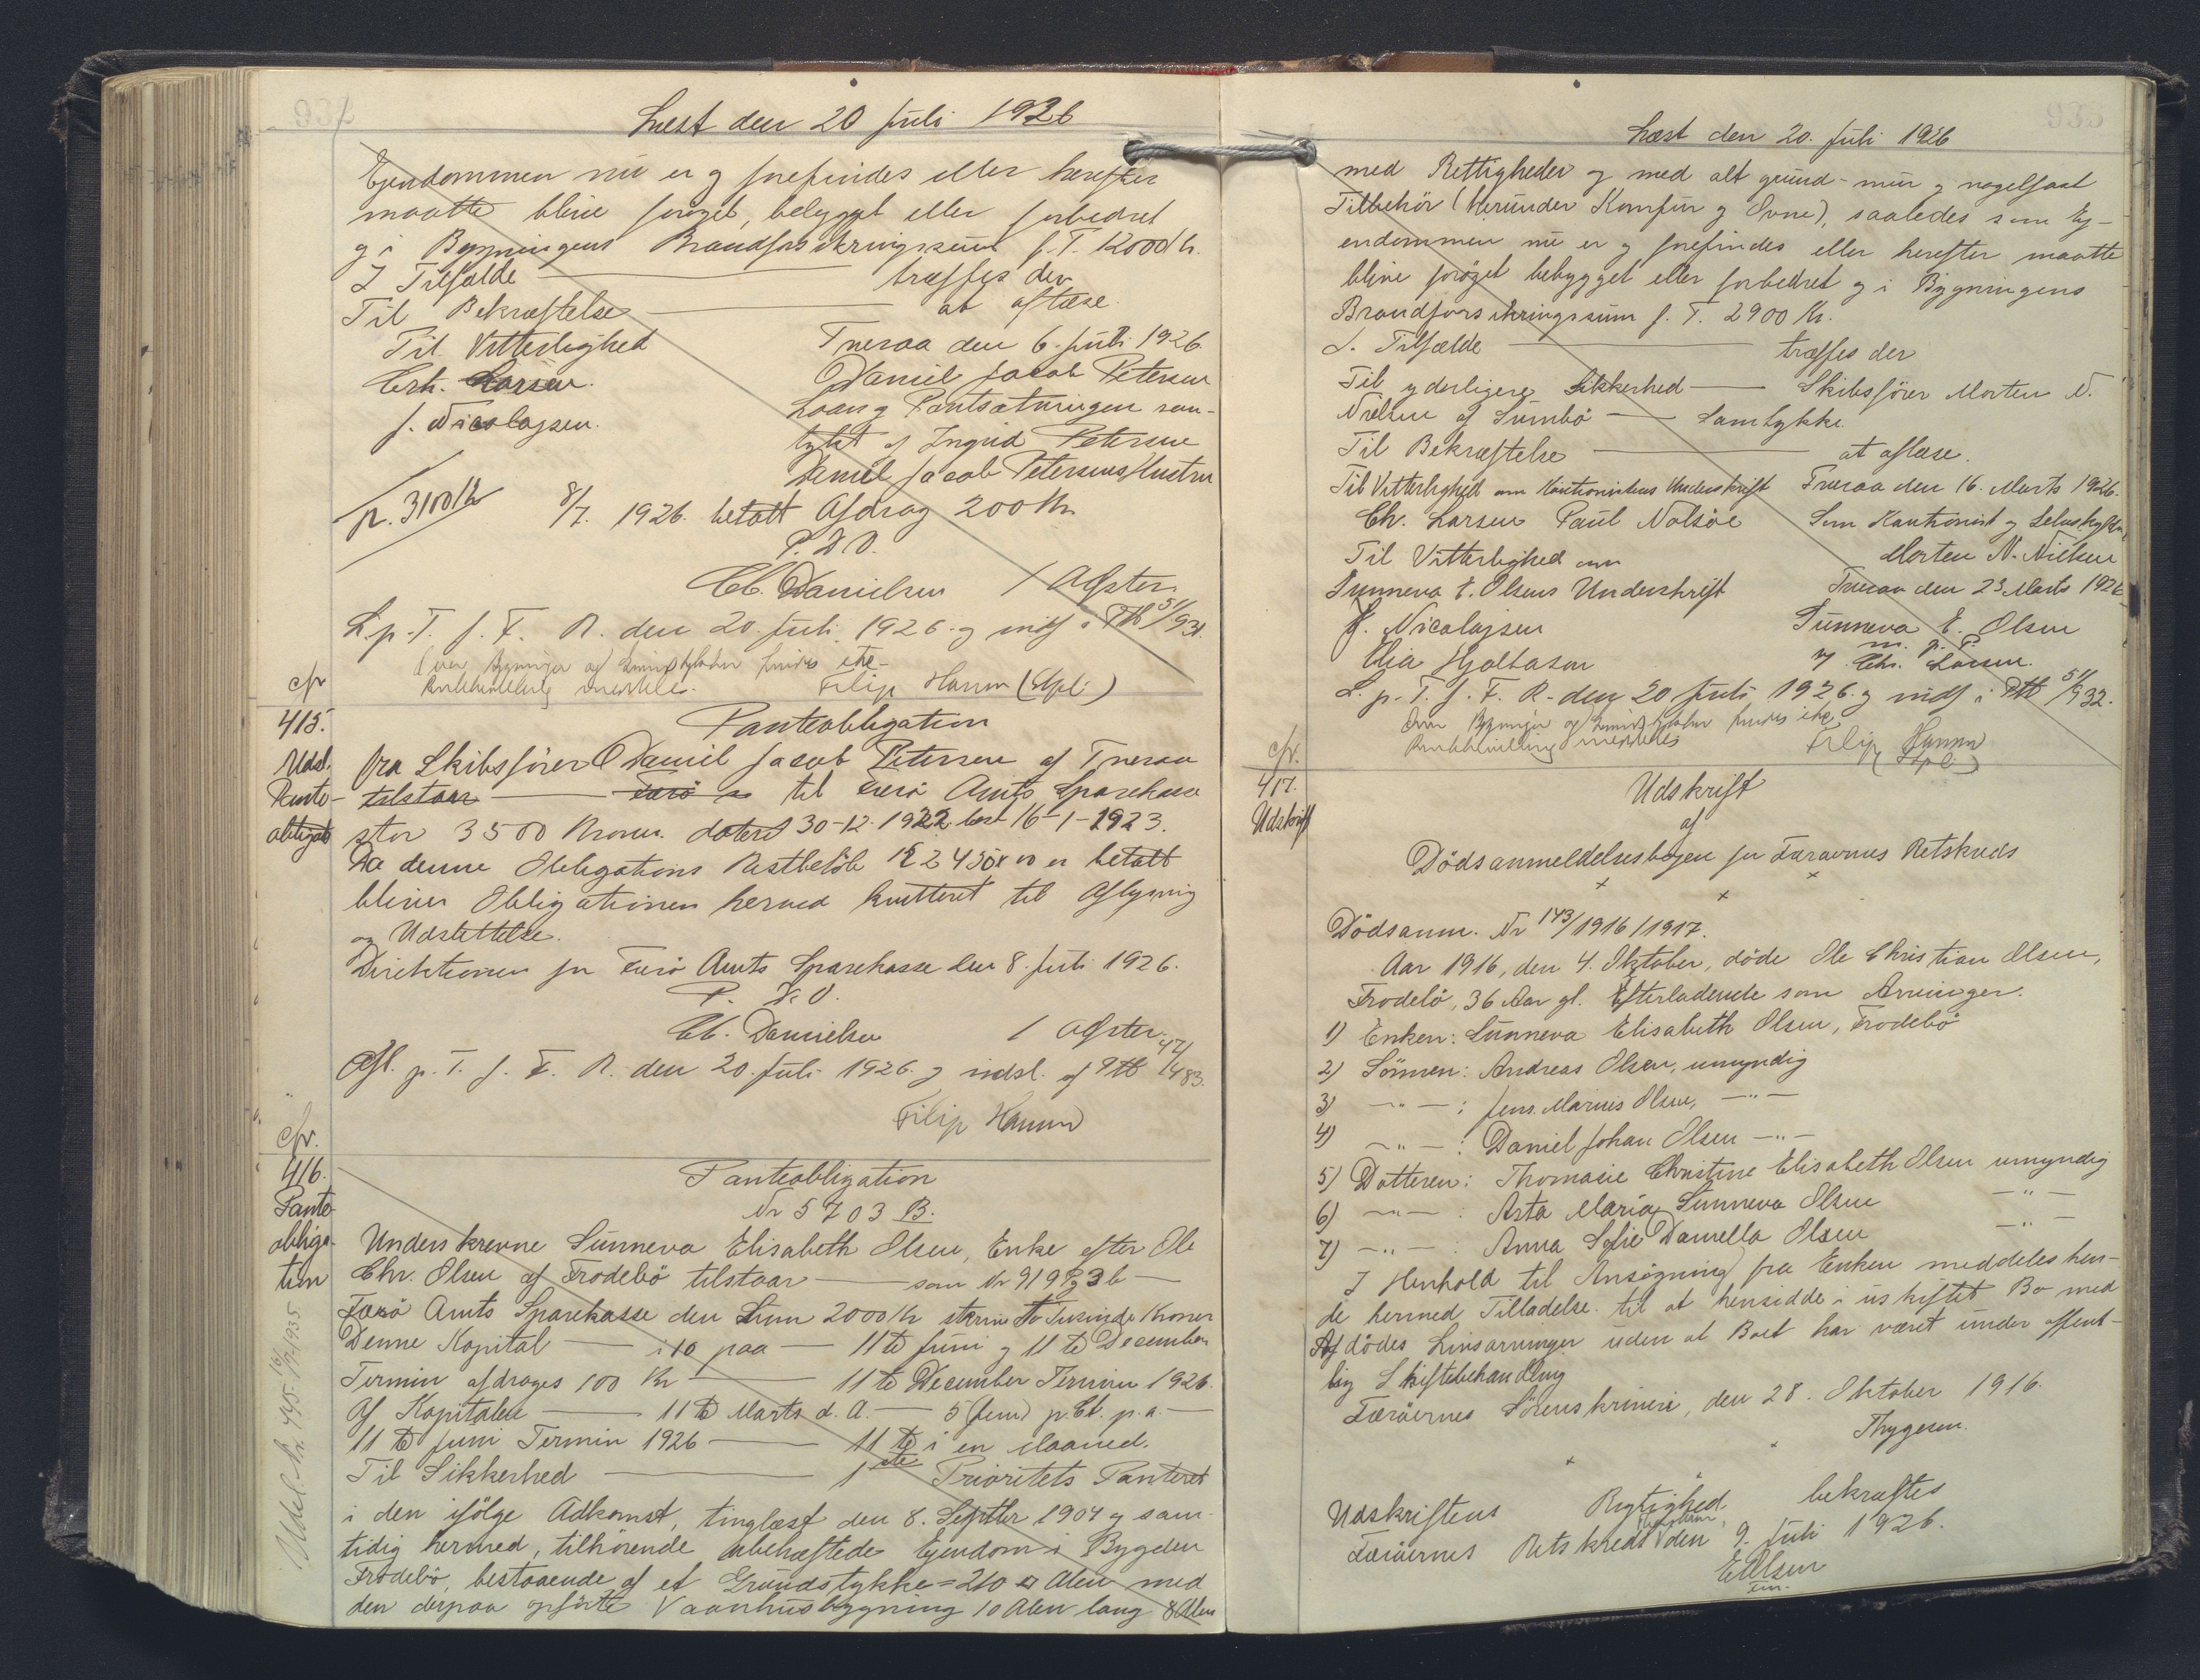 Læst den 20 Juli 1926
Ejendommen nu er og forefindes eller herefter
maatte blive forøget, bebygget eller forbedret
og i Bygningens Brandforsikringssum p. T. 12000 Kr.
I Tilfælde — træffes der
Til Bekræftelse — at aflæse.
Til Vitterlighed Tveraa den 6. Juli 1926.
Chr. Larsen. Daniel Jacob Petersen
J. Nicolajsen. Laan og Pantsætningen sam-
tykt af Ingrid Petersen
Daniel Jacob Petersens Hustru
p. 3100 Kr 8/7. 1926. betalt Afdrag 200 Kr.
P. D V.
Chr. Danielsen / Aster.
L. p. T. f. F. R. den 20. Juli 1926. og indf i Ptb 51/931.
Over Bygninger og Grundstykker findes ikke
meddelt. Filip Hansen (Stpl.)
cfr
415.
Udsl. Pante-obligat.
Panteobligation
fra Skibsfører Daniel Jacob Petersen af Tveraa
tilstaar — Færø til Færø Amts Sparekasse
stor 3500 Kroner. dateret 30-12-1922 læst 16-1-1923.
Da denne Obligations Restbeløb Kr 2450 x 00 er betalt
bliver Obligationen herved kvitteret til Aflysning
og Udslettelse.
Direktionen for Færø Amts Sparekasse den 8. Juli 1926.
P. D. V.
Chr. Danielsen / Aster.
Afl. p. T. f. F. R. den 20. Juli 1926. og udsl. af Ptb 47/483.
Filip Hansen
cfr.
416.
Pante-obliga-tion
Udsl. Nr. 445 - 16/7 1935.
Panteobligation
Nr 5703 B.
Underskrevne Sunneva Elisabeth Olsen, Enke efter Ole
Chr. Olsen af Frodebø tilstaar — som Nr 919 og 3 b —
Færø Amts Sparekasse den Sum 2000 Kr skrive to Tusinde Kroner
Denne Kapital — i 10 paa — 11te Juni og 11te December
Termin afdrages 100 Kr — 11te December Termin 1926.
Af Kapitalen — 11te Marts d. A. — 5 (fem) p. Ct. p. a. —
11te Juni Termin 1926 — 11te i en Maaned.
Til Sikkerhed — 1ste Prioritets Panteret
i den ifølge Adkomst, tinglæst den 8. Septbr 1904 og sam-
tidig hermed, tilhørende ubehæftede Ejendom i Bygden
Frodebø, bestaaende af et Grundstykke = 210 □ Alen med
den derpaa opførte Vaanhusbygning 10 Alen lang 8 Alen
Læst den 20. Juli 1926
med Rettigheder og med alt grund- mur og nagelfast
Tilbehør (herunder Komfur og Ovne), saaledes som Ej-
endommen nu er og forefindes eller herefter maatte
blive forøget bebygget eller forbedret og i Bygningens
Brandforsikringssum p. T. 2900 Kr.
I. Tilfælde — træffes der
Til yderligere Sikkerhed — Skibsfører Morten N.
Nielsen af Sumbø — Samtykke.
Til Bekræftelse — at aflæse.
Til Vitterlighed om Kautionistens Underskrift Tveraa den 16. Marts 1926.
Chr. Larsen Paul Nolsøe Som Kautionist og Selvskyldner
Til Vitterlighed om Morten N. Nielsen
Sunneva E. Olsens Underskrift Tveraa den 23 Marts 1926
J. Nicolajsen Sunneva E. Olsen
Elia Hjaltason m. p. P.
v. Chr. Larsen.
L. p. T. f. F. R. den 20 Juli 1926. og indf i Ptb 51/932.
Over Bygninger og Grundstykker findes ikke
meddelt Filip Hansen
(Stpl.)
cfr.
417.
Udskrift
Udskrift
af
Dødsanmeldelsesbogen for Færøernes Retskreds
Dødsanm. Nr 143/1916/1917.
Aar 1916, den 4. Oktober, døde Ole Christian Olsen,
Frodebø, 36 Aar gl. Efterladende som Arvinger.
1) Enken: Sunneva Elisabeth Olsen, Frodebø
2) Sønnen: Andreas Olsen, umyndig
3) —"— : Jens Marius Olsen, —"—
4) —"— : Daniel Johan Olsen —"—
5) Datteren: Thomasie Christine Elisabeth Olsen umyndig
6) —"— : Asta Maria Sunneva Olsen —"—
7) —"— : Anna Sofie Daniella Olsen —"—
I Henhold til Ansøgning fra Enken meddeles hen-
de hermed Tilladelse til at hensidde i uskiftet Bo med
Afdødes Livsarvinger uden at Boet har været under offent-
lig Skiftebehandling
Færøernes Sorenskriveri, den 28. Oktober 1916.
Thygesen.
Udskriftens Rigtighed bekræftes
Færøernes Retskreds Thorshavn, den 9. Juli 1926.
E Olsen
fm.